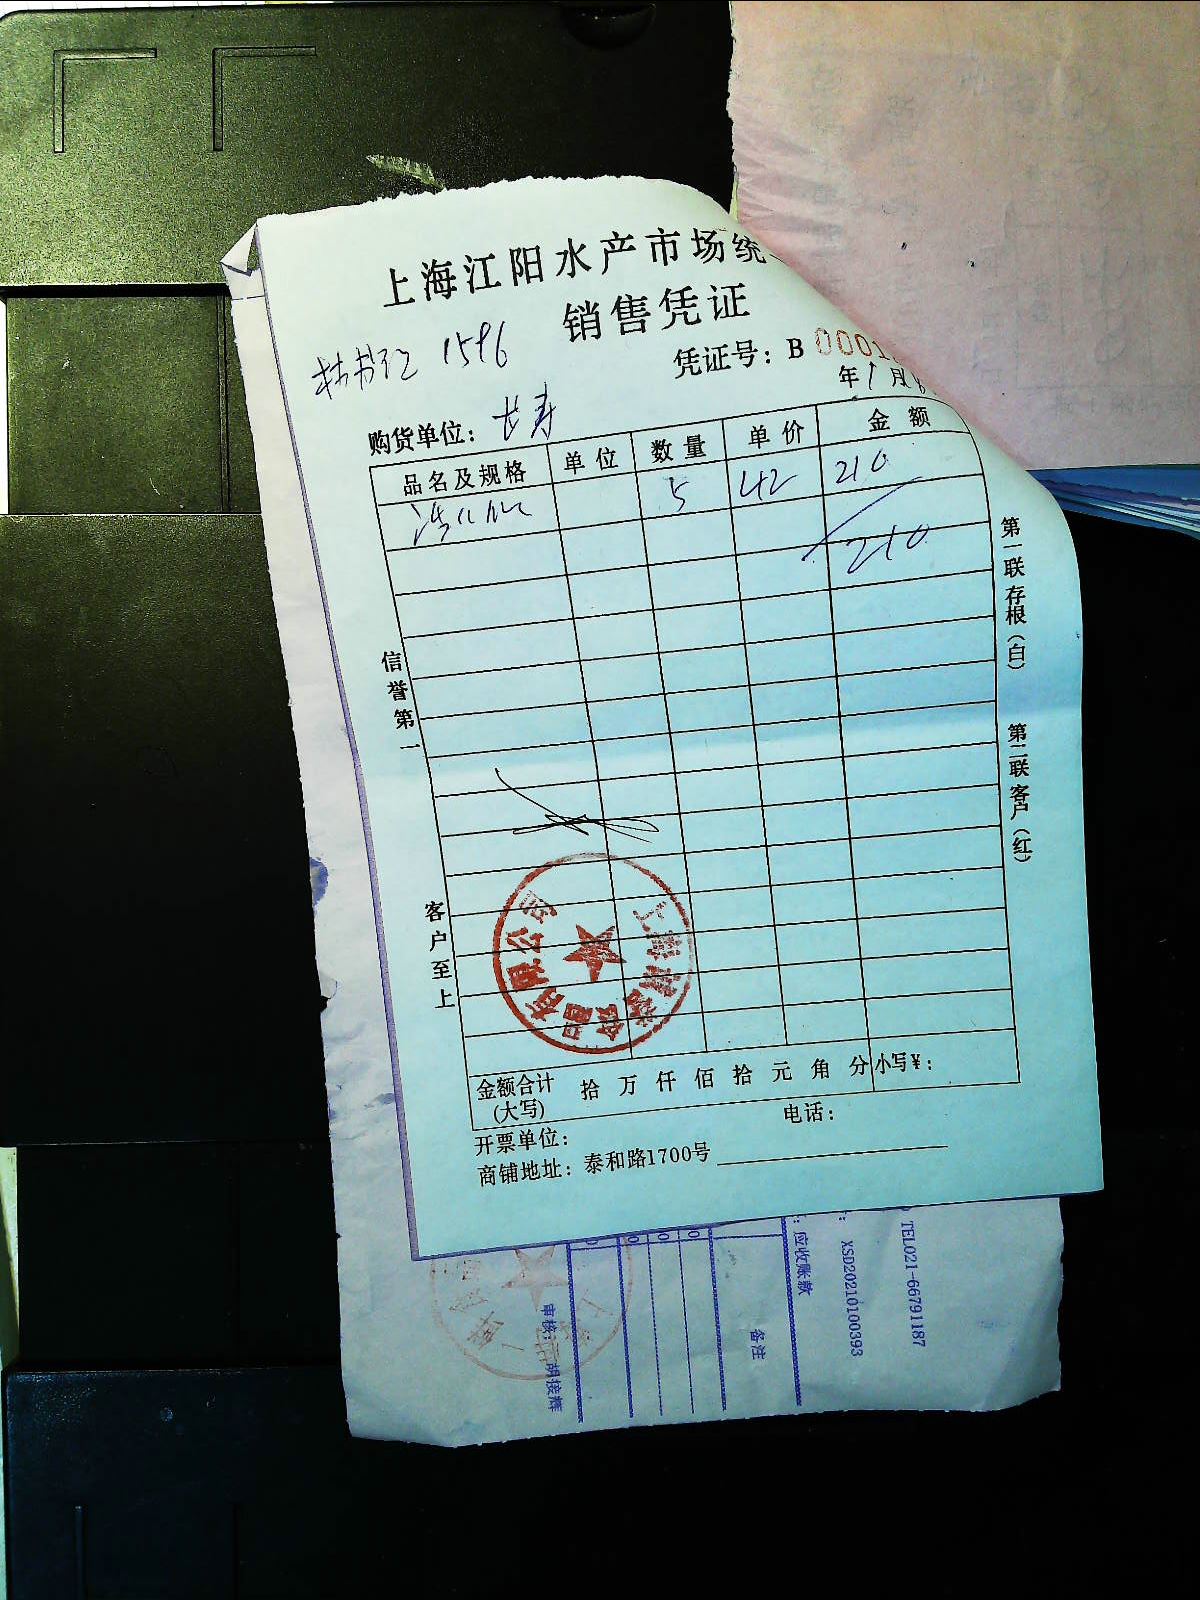 上海江阳水产市场统
销售凭证
1596
凭证号：B 0001
年1月
购货单位：长寿
品名及规格 单位 数量 单价 金额
5 42 210
210
信誉第一
客户至上
第一联存根（白）
第二联客户（红）
食品有限公司
金额合计（大写） 拾 万 仟 佰 拾 元 角 分 小写¥：
开票单位： 电话：
商铺地址：泰和路1700号
TEL021-66791187
XSD20210100393
应收账款
备注
审核：胡接辉